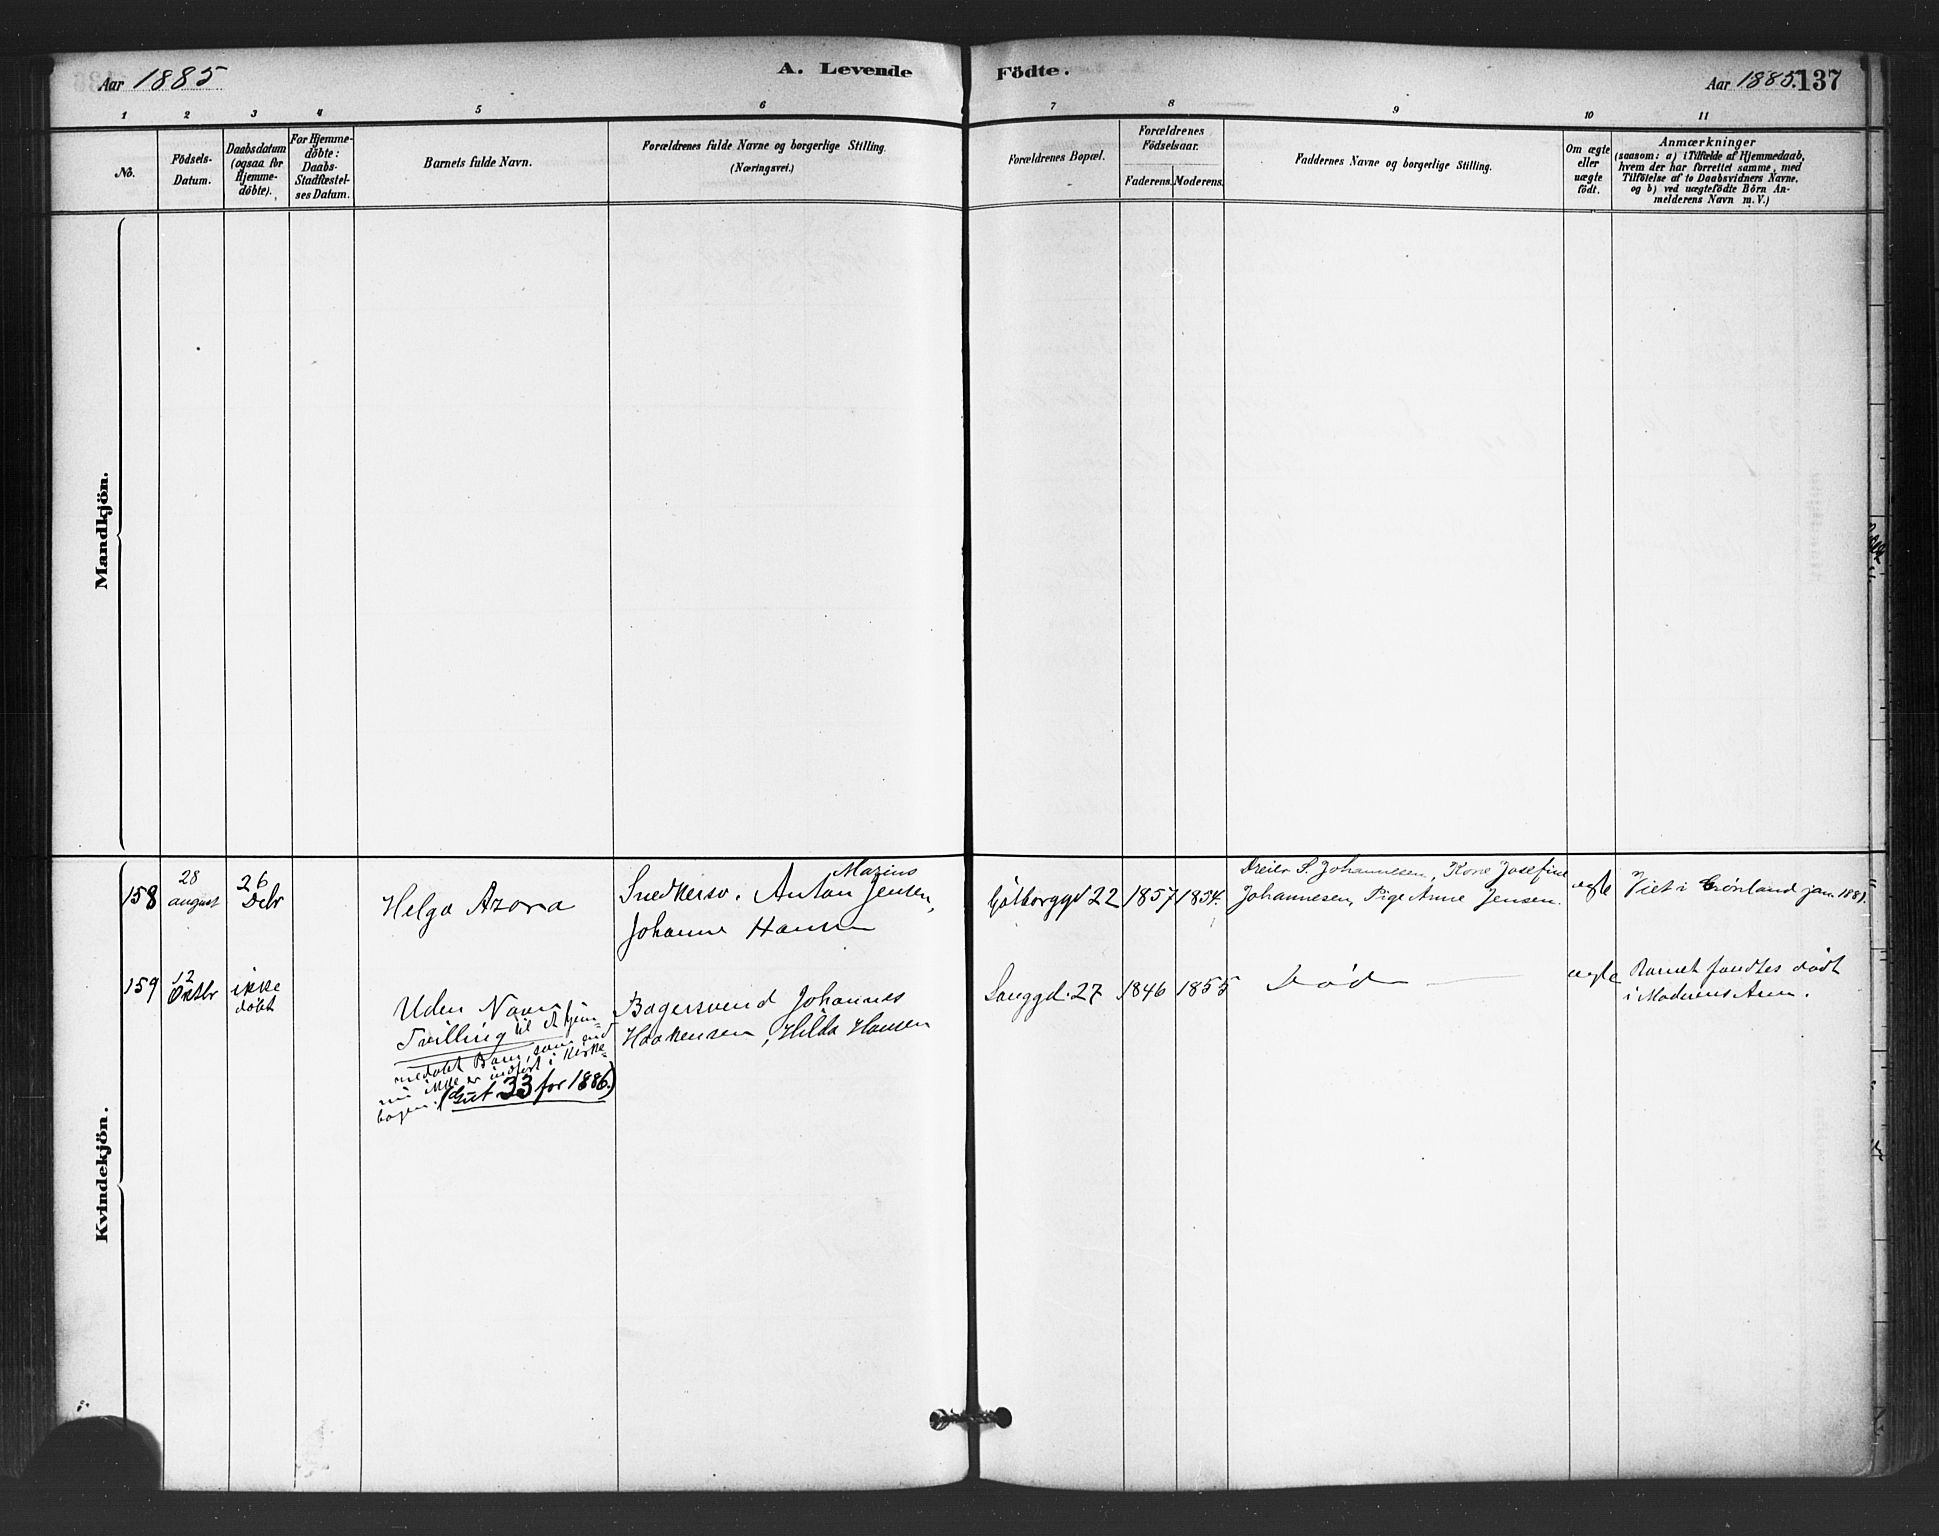 Aar 1885
A. Levende
Födte.
Aar 1885.
137
1 2 3 4 5 6 7 8 9 10 11
No.
Födsels-
Datum.
Daabsdatum
(ogsaa for
Hjemme-
döbte).
For Hjemme-
döbte:
Daabs-
Stadfæstel-
ses Datum.
Barnets fulde Navn.
Forældrenes fulde Navne og borgerlige Stilling.
(Næringsvei.)
Forældrenes Bopæl.
Forældrenes
Födselsaar.
Faderens. Moderens.
Faddernes Navne og borgerlige Stilling.
Om ægte
eller
uægte
födt.
Anmærkninger
(saasom: a) i Tilfælde af Hjemmedaab,
hvem der har forrettet samme, med
Tilföielse af to Daabsvidners Navne,
og b) ved uægtefödte Börn An-
melderens Navn m. V.)
Mandkjön.
Kvindekjön.
158
28
august
26
Debr
Helga Azora
Marius
Snedkersv. Anton Jensen,
Johanne Hansen
22
1857
1854.
Dreier S. Johannesen, Kone Josefine
Johannesen, Pige Anne Jensen.
ægte
Viet i Grönland jan.
159
12
Oktbr
ikke
döbt
Uden Navn
Tvilling til et hjem=
medöbt Barn, som end
nu ikke er indfört i Kirke=
bogen. (Gut 33 for 1886.)
Bagersvend Johannes
Haakensen, Hilda Hansen
Langgd. 27
1846
1855
Död
ægte
Barnet fandtes dödt
i Moderens Arm.